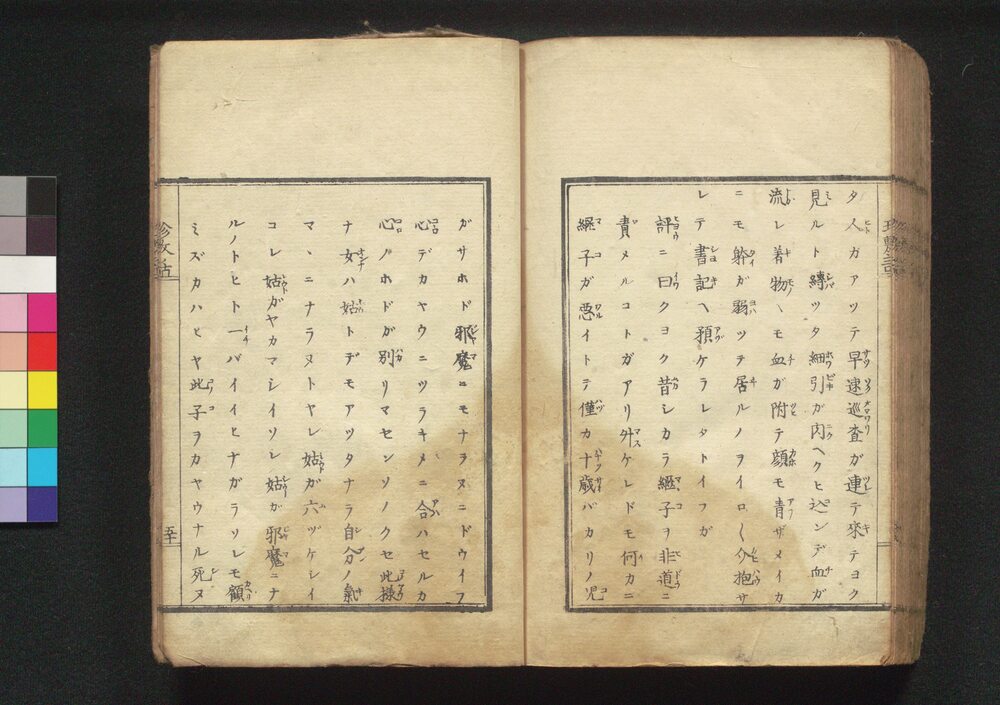 タ人カアツテ早速巡査ガ連テ來テヨク
見ルト縛ツタ細引ガ肉ヘクヒ込ンデ血ガ
流レ着物ヘモ血ガ附テ顔モ青ザメイカ
ニモ躰ガ弱ツテ居ルノヲイロ〱介抱サ
レテ書記ヘ預ケラレタトイフガ
評ニ曰クヨク昔シカラ継子ヲ非道ニ
責メルコトガアリ外ケレドモ何カニ
継子ガ悪イトテ僅カ十歳バカリノ児
ガサホド邪魔ニモナラヌニドウイフ
心デカヤウニツラキメニ合ハセルカ
心ノホドガ別リマセンソノクセ此様
ナ女ハ姑トデモアツタナラ自分ノ氣
マヽニナラヌトヤレ姑ガ六ヅケシイ
コレ姑ガヤカマシイソレ姑ガ邪魔ニナ
ルノトヒト一バイイヒナガラソレモ顧
ミズカハヒヤ此子ヲカヤウナル死ヌ
五十